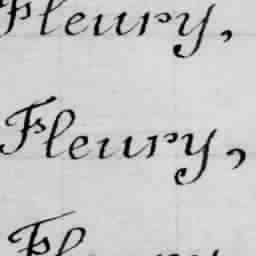 Fleury,
Fleury,